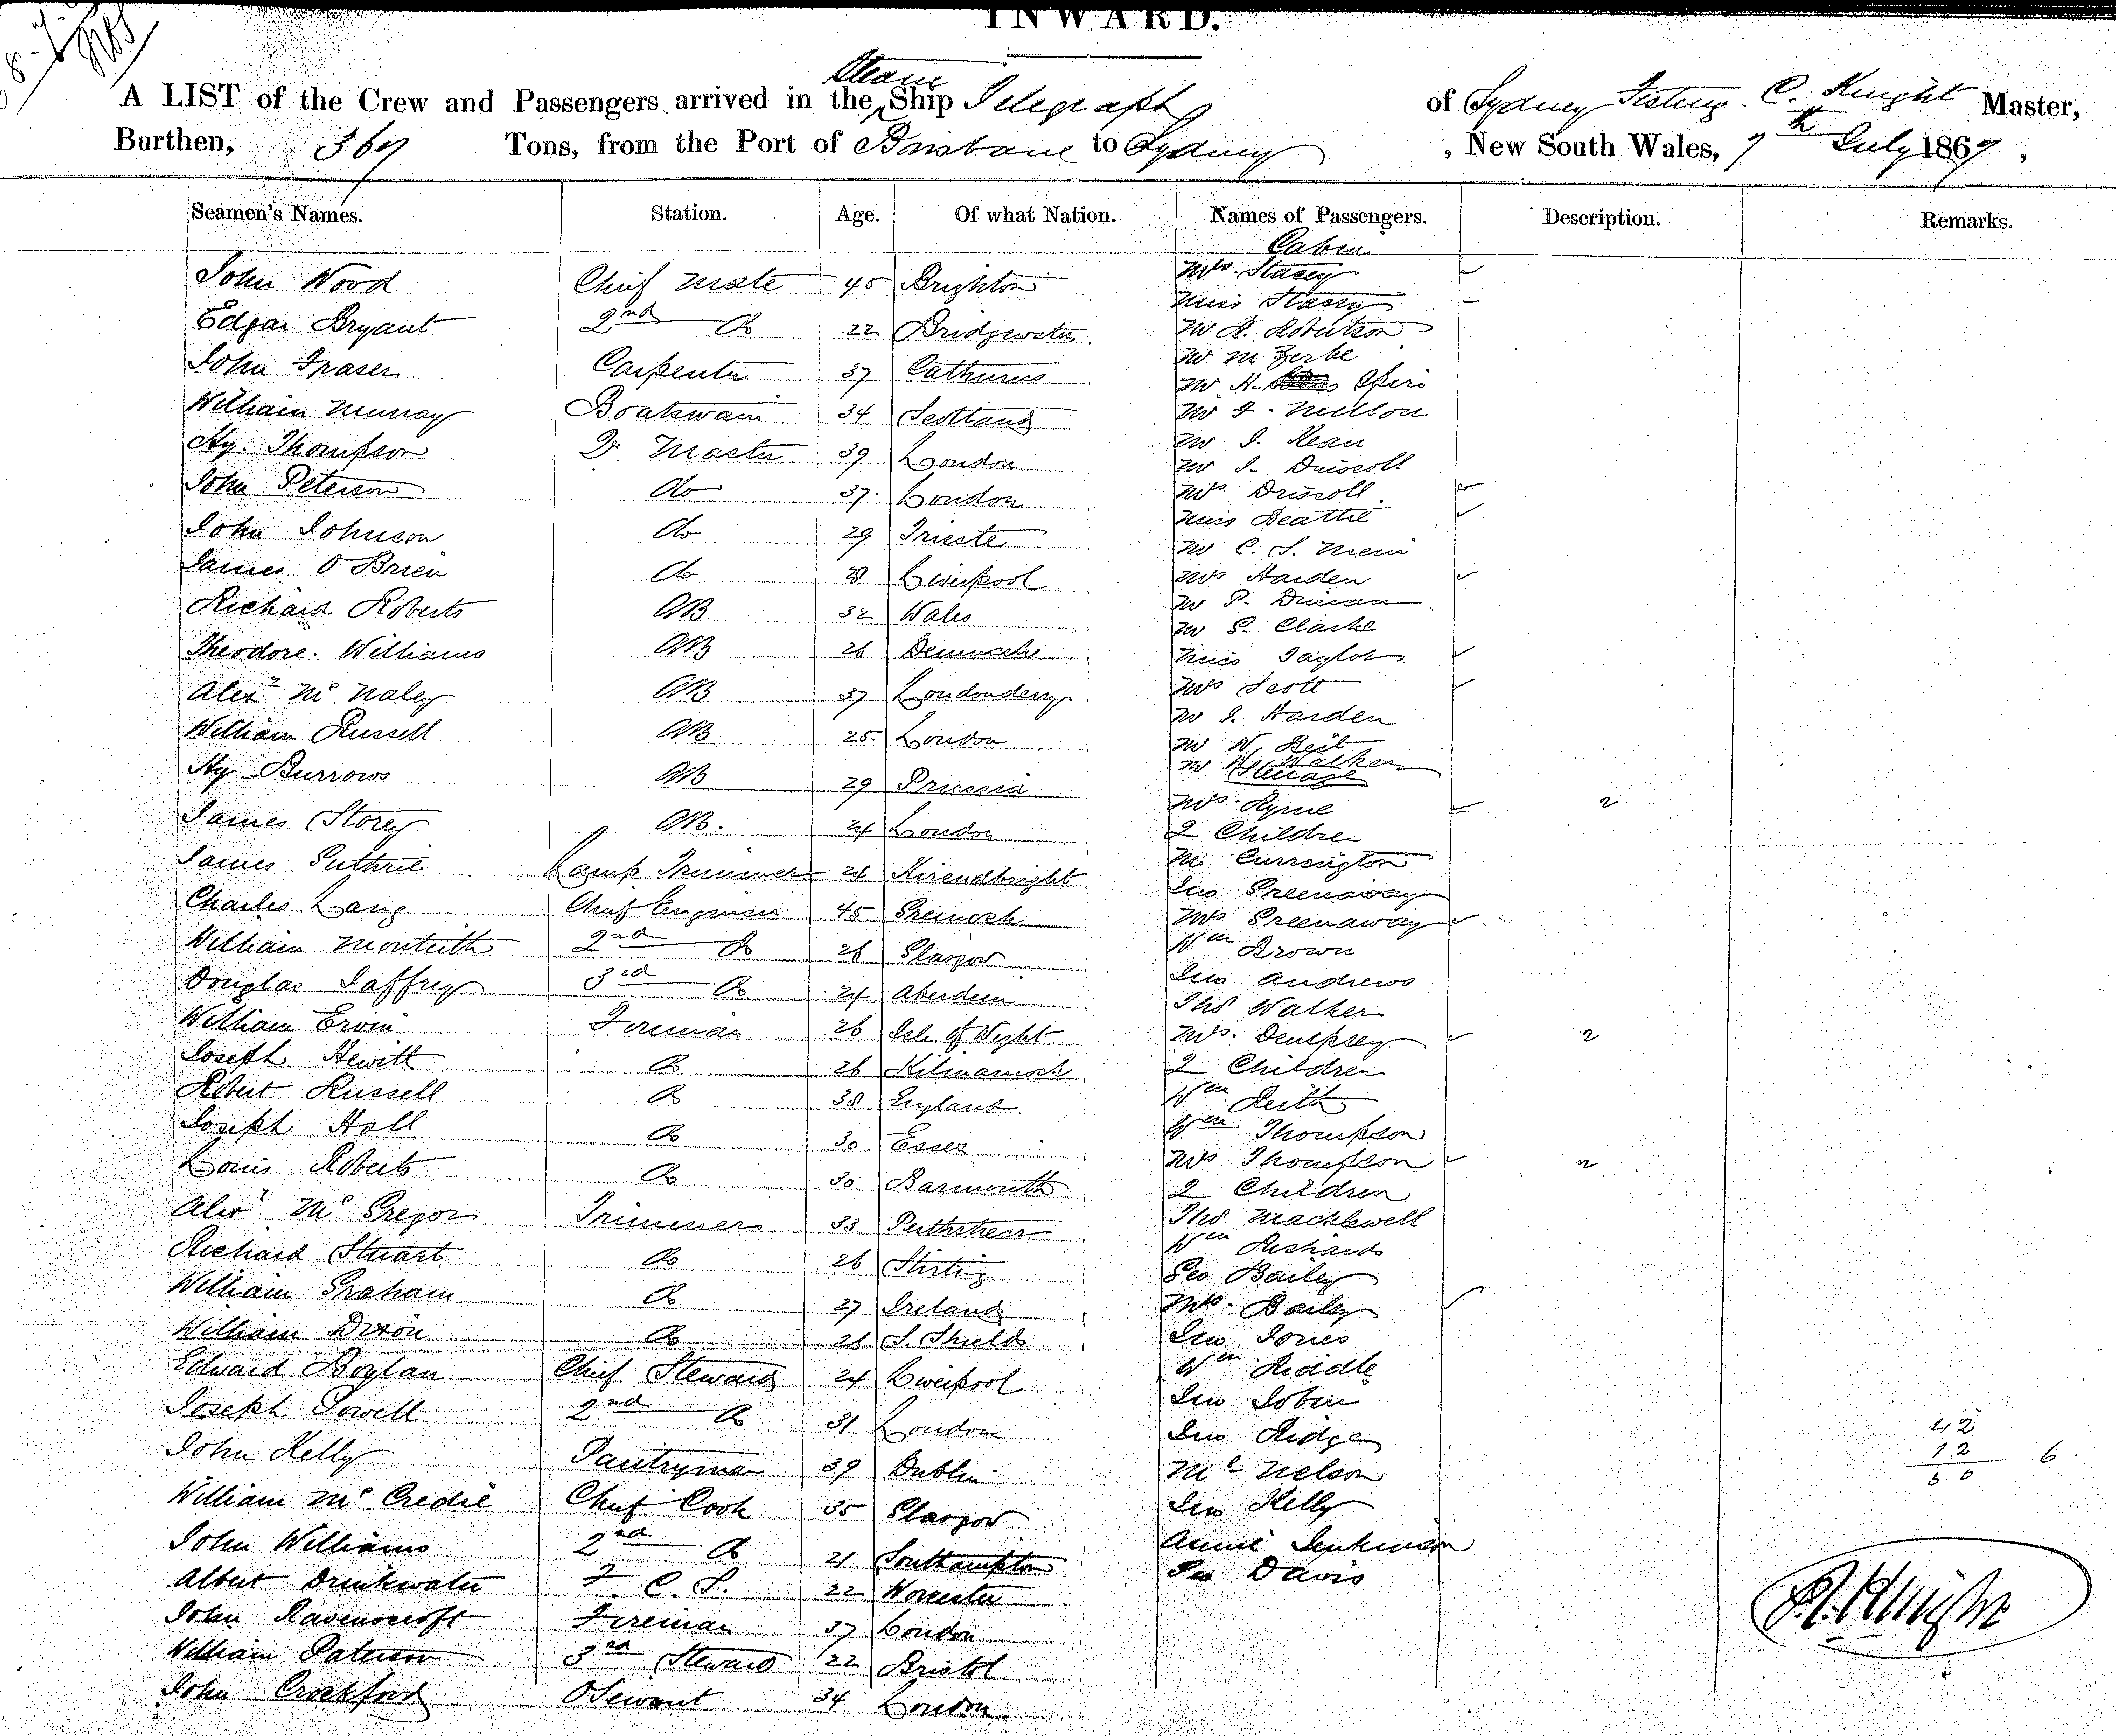 INWARD.
A LIST of the Crew and Passengers arrived in the Steam Ship Telegraph of Sydney C. Knight Master,
Burthen, 367 Tons, from the Port of Brisbane to Sydney, New South Wales, 7th July 1867,
Seamen's Names. Station. Age. Of what Nation. Names of Passengers. Description. Remarks.
Cabin
John Wood Chief Mate 45 Brighton Mrs Stacey
Miss Stacey
Edgar Bryant 2nd Do 22 Bridgwater Mr R. Robertson
John Fraser Carpenter 37 Mr M Zerbe
Mr H.
William Murray Boatswain 34 Scotland Mr J. Neilson
Hy. Thompson Q. Master 39 London Mr J. Kean
Mr J. Driscoll
John Peterson do 37 London Mrs Driscoll
Miss Beattie
John Johnson do 29 Trieste Mr C. S.
James O'Brien do Liverpool Mrs Harden
Richard Roberts AB 32 Wales Mr P.
Mr S. Clarke
Theodore Williams AB 26 Denmark Miss Taylor
Alexr McNaley AB 37 Londonderry Mrs Scott
Mr J. Harden
William Russell AB 25 London Mr W.
Mr Walker
Hy Burrows AB 29 Prussia Steerage
Mrs Byrne 2
James Storey AB. 24 London 2 Children
Mr Currington
James Guthrie Lamp Trimmer 24 Kircudbright Jno Greenaway
Charles Lang Chief Engineer 45 Greenock Mrs Greenaway
William Monteith 2nd Do 26 Glasgow Wm Brown
Douglas Jaffrey 3rd Do 24 Aberdeen Jno Andrews
Thos Walker
William Ervin Fireman 26 Isle of Wight Mrs. Dempsey 2
Joseph Hewitt Do 26 Kilmarnock 2 Children
Robert Russell Do 38 England Wm Keith
Joseph Hall Do 30 Essex Wm Thompson
Louis Roberts Do 30 Barmouth Mrs Thompson 2
2 Children
Alexr McGregor Trimmer 33 Perthshire Thos Mackewell
Richard Stuart Do 26 Stirling Wm Richards
Geo Bailey
William Graham Do 27 Ireland Mrs. Bailey
William Dixon Do 26 S. Shields Jno Jones
Edward Boylan Chief Steward 24 Liverpool Wm Riddle
Joseph Powell 2nd Do 31 London Jno Tobin
Jno Ridge 42
John Kelly Pantryman 39 Dublin Mc Nelson 12 6
William McCredie Chief Cook 35 Glasgow Jno Kelly
John Williams 2nd Do 21 Southampton Annie Jenkinson
Albert Drinkwater F. C. S. 22 Worcester Jno Davis
John Ravenscroft Fireman 37 London
William Paterson 3rd Steward 22 Bristol
John Crockford 34 London
C. Knight